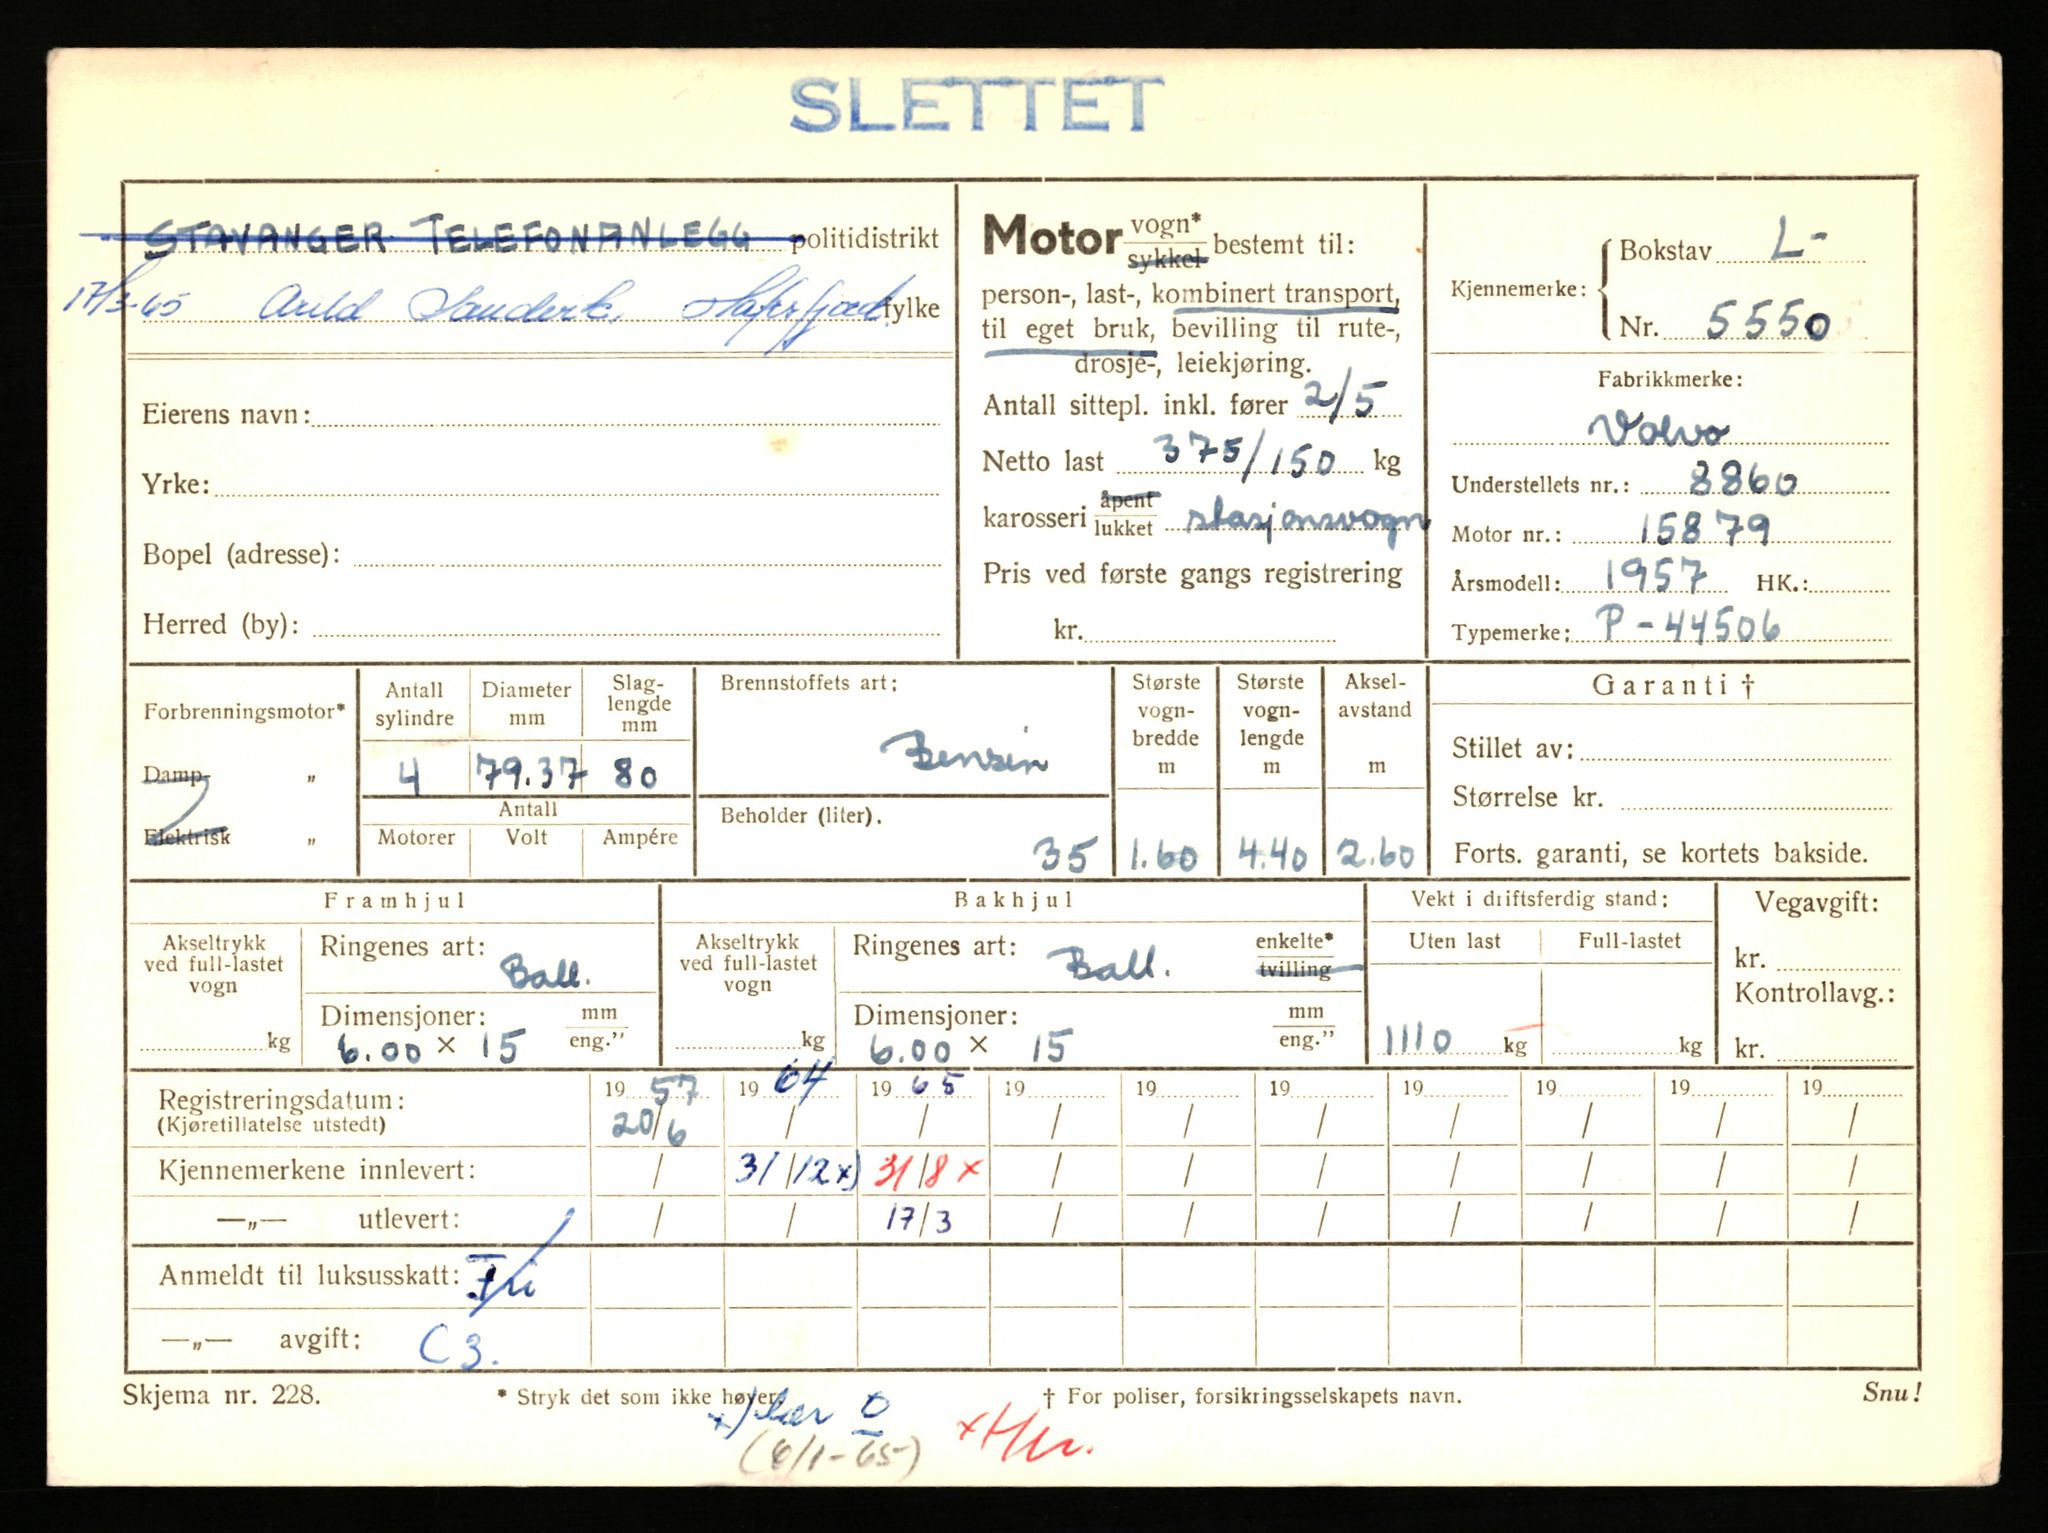 SLETTET
STAVANGER TELEFONANLEGG politidistrikt
17/3-65 Arild Hafrsfjord fylke
Eierens navn:
Yrke:
Bopel (adresse):
Herred (by):
Motor vogn* sykkel bestemt til:
person-, last-, kombinert transport,
til eget bruk, bevilling til rute-,
drosje-, leiekjøring.
Antall sittepl. inkl. fører 2/5
Netto last 375/150 kg
karosseri åpent lukket stasjonsvogn
Pris ved første gangs registrering
kr.
Kjennemerke: Bokstav L-
Nr. 5550
Fabrikkmerke:
Volvo
Understellets nr.: 8860
Motor nr.: 15879
Årsmodell: 1957 HK.:
Typemerke: P-44506
Forbrenningsmotor*
Damp- „
Elektrisk „
Antall sylindre
Diameter mm
Slag-lengde mm
4 79.37 80
Antall
Motorer Volt Ampére
Brennstoffets art:
Bensin
Beholder (liter).
35
Største vogn-bredde m
1.60
Største vogn-lengde m
4.40
Aksel-avstand m
2.60
Garanti †
Stillet av:
Størrelse kr.
Forts. garanti, se kortets bakside.
Framhjul
Akseltrykk ved full-lastet vogn
kg
Ringenes art: Ball.
Dimensjoner: mm eng.”
6.00 × 15
Bakhjul
Akseltrykk ved full-lastet vogn
kg
Ringenes art: Ball. enkelte* tvilling
Dimensjoner: mm eng.”
6.00 × 15
Vekt i driftsferdig stand:
Uten last Full-lastet
1110 kg kg
Vegavgift:
kr.
Kontrollavg.:
kr.
Registreringsdatum: 19 57 19 64 19 65 19 19 19 19 19 19 19
(Kjøretillatelse utstedt) 20/6 / / / / / / / / /
Kjennemerkene innlevert: / 31/12 x) 31/8 x / / / / / / /
—„— utlevert: / / 17/3 / / / / / / /
Anmeldt til luksusskatt: Fri
—„— avgift: C 3.
Skjema nr. 228. * Stryk det som ikke høver. † For poliser, forsikringsselskapets navn. Snu!
(6/1-65)